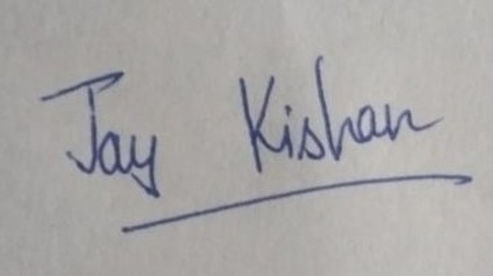 Jay Kishan